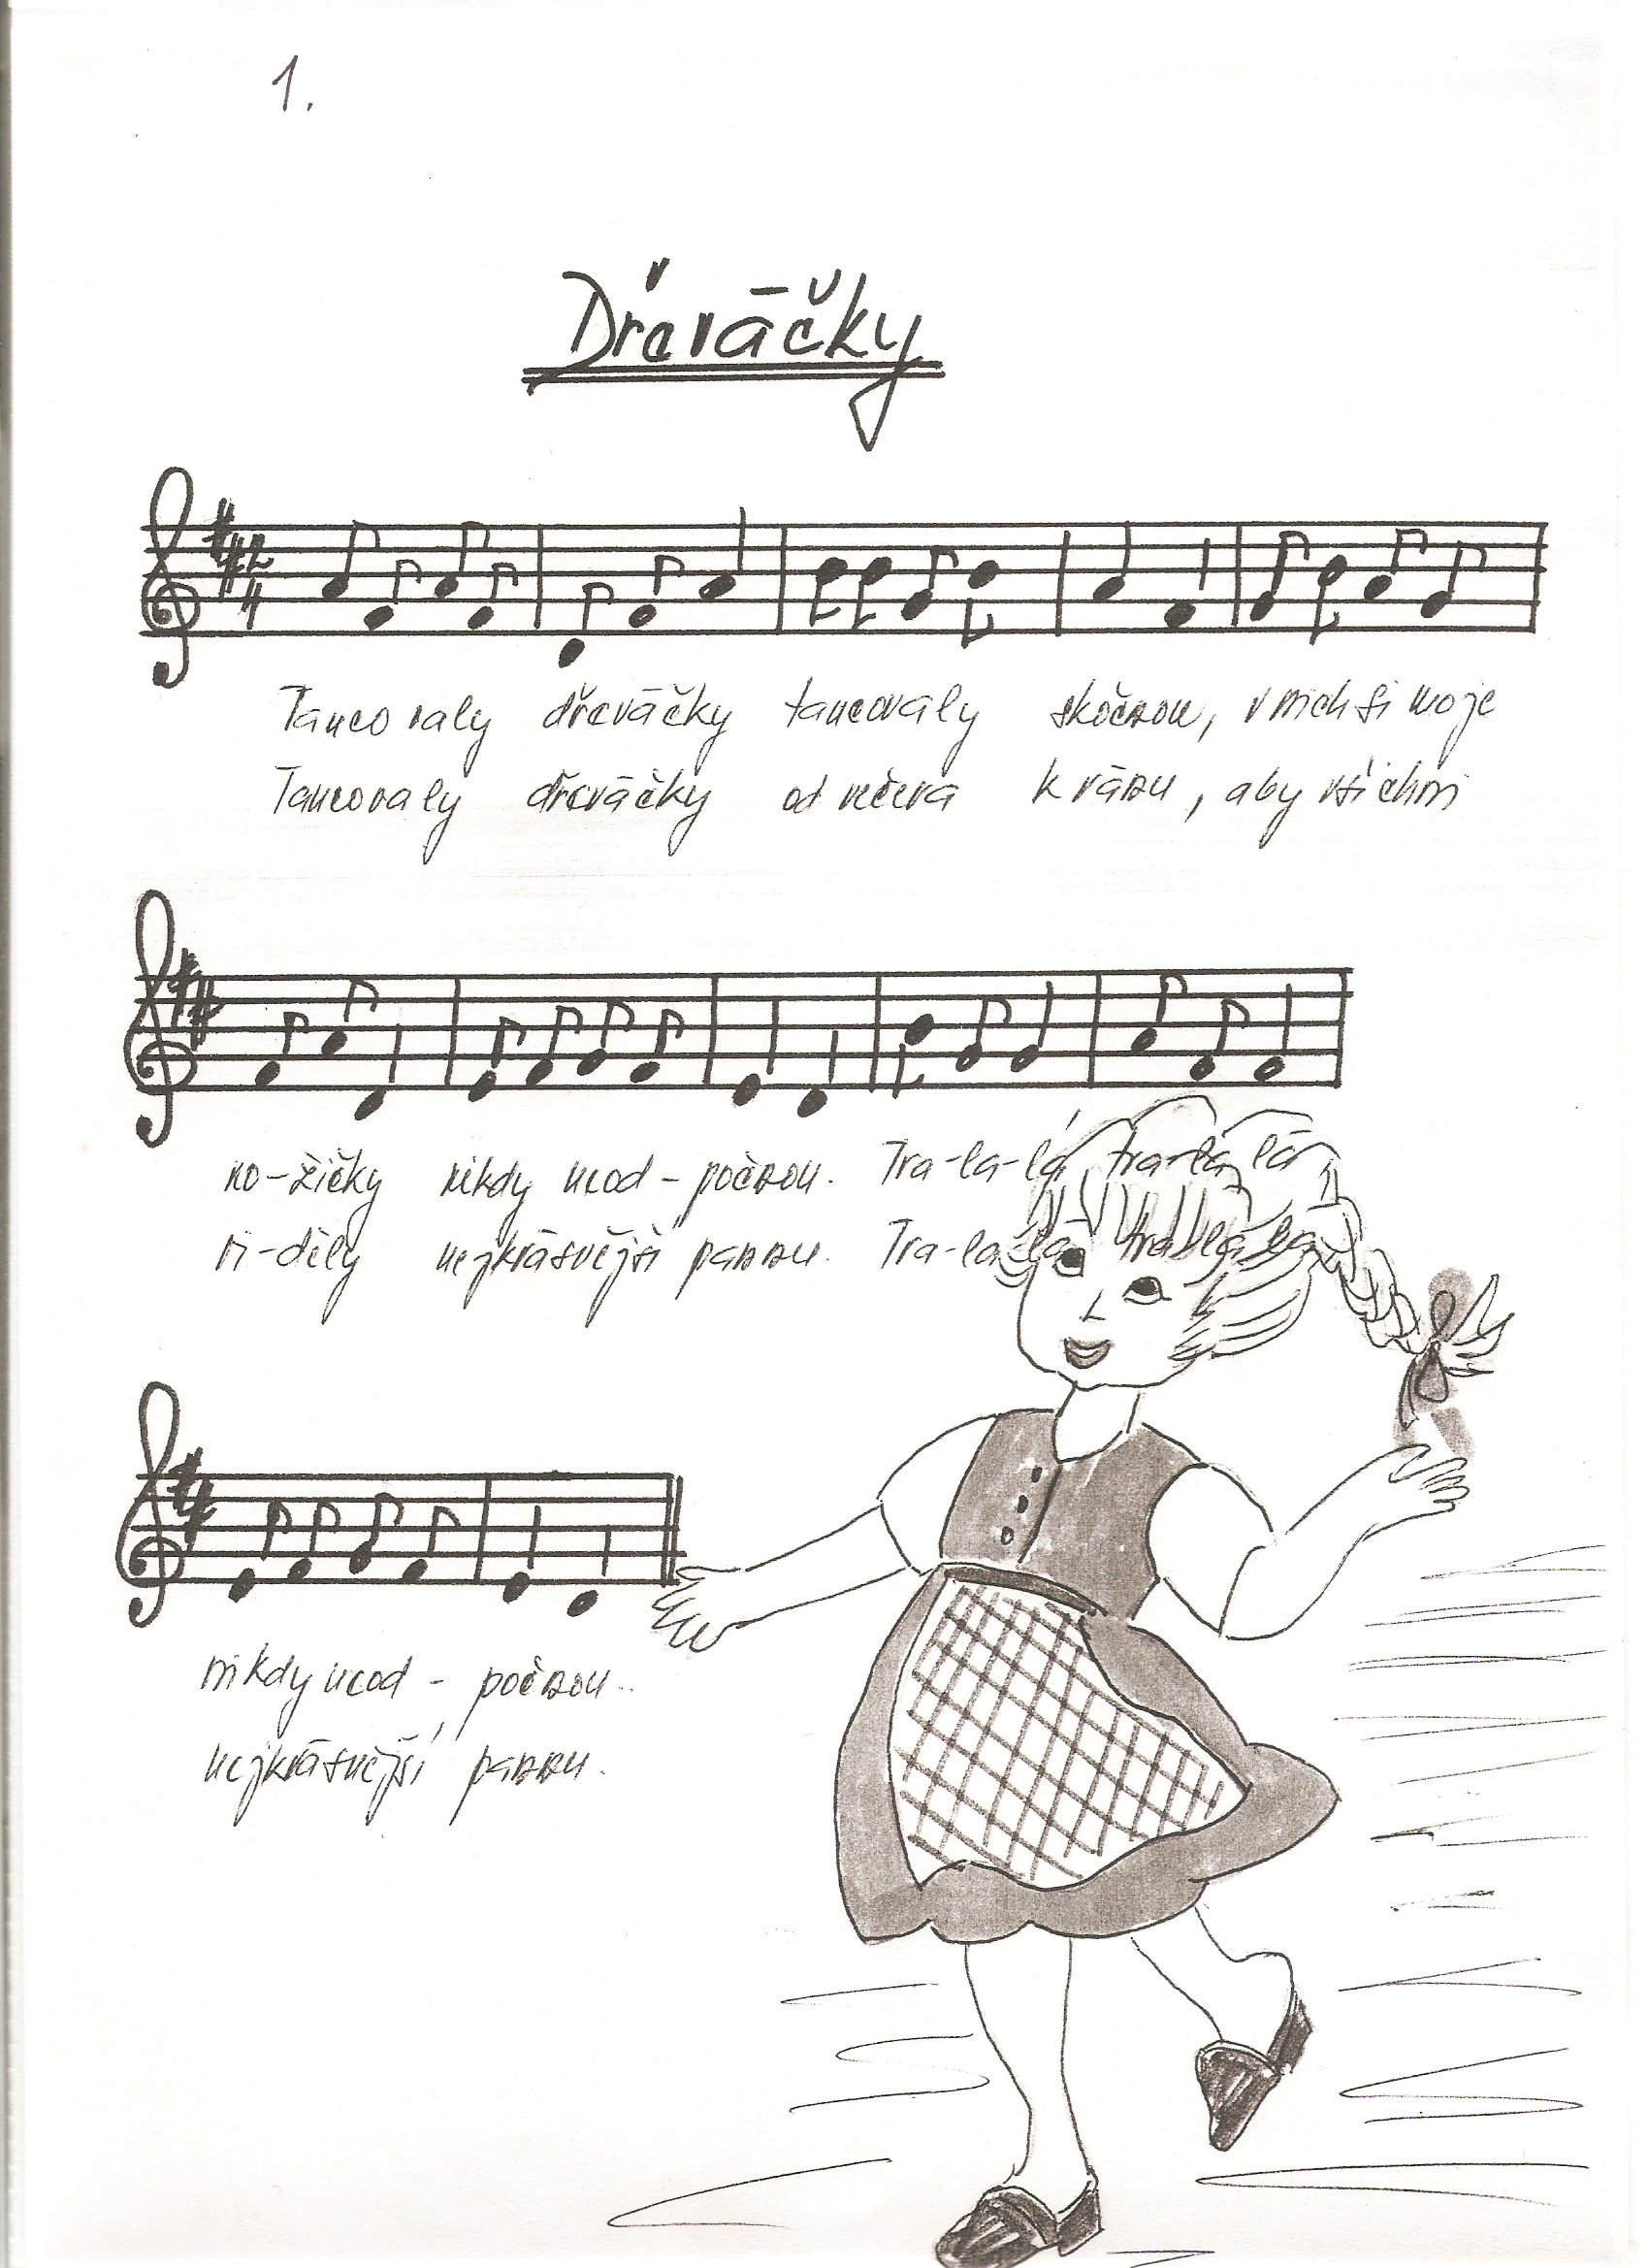 1.
Dřeváčky
2
4
Tancovaly dřeváčky tancovaly skočnou, v nich si moje
Tancovaly dřeváčky od večera k ránu, aby všichni
no-žičky nikdy neod-počnou. Tra-la-lá, tra-la lá,
vi-děly nejkrásnější pannu. Tra-la-lá tra la lá
nikdy neod-počnou..
nejkrásnější pannu.